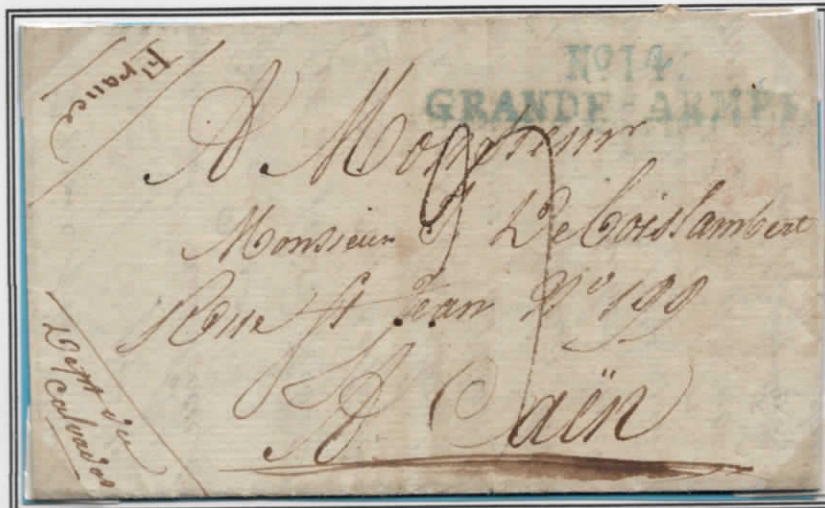 France
No 14.
GRANDE-ARMÉE
A Monsieur
Monsieur De Boislambert
Rue St Jean No 199
A Caën
Dept du
Calvados